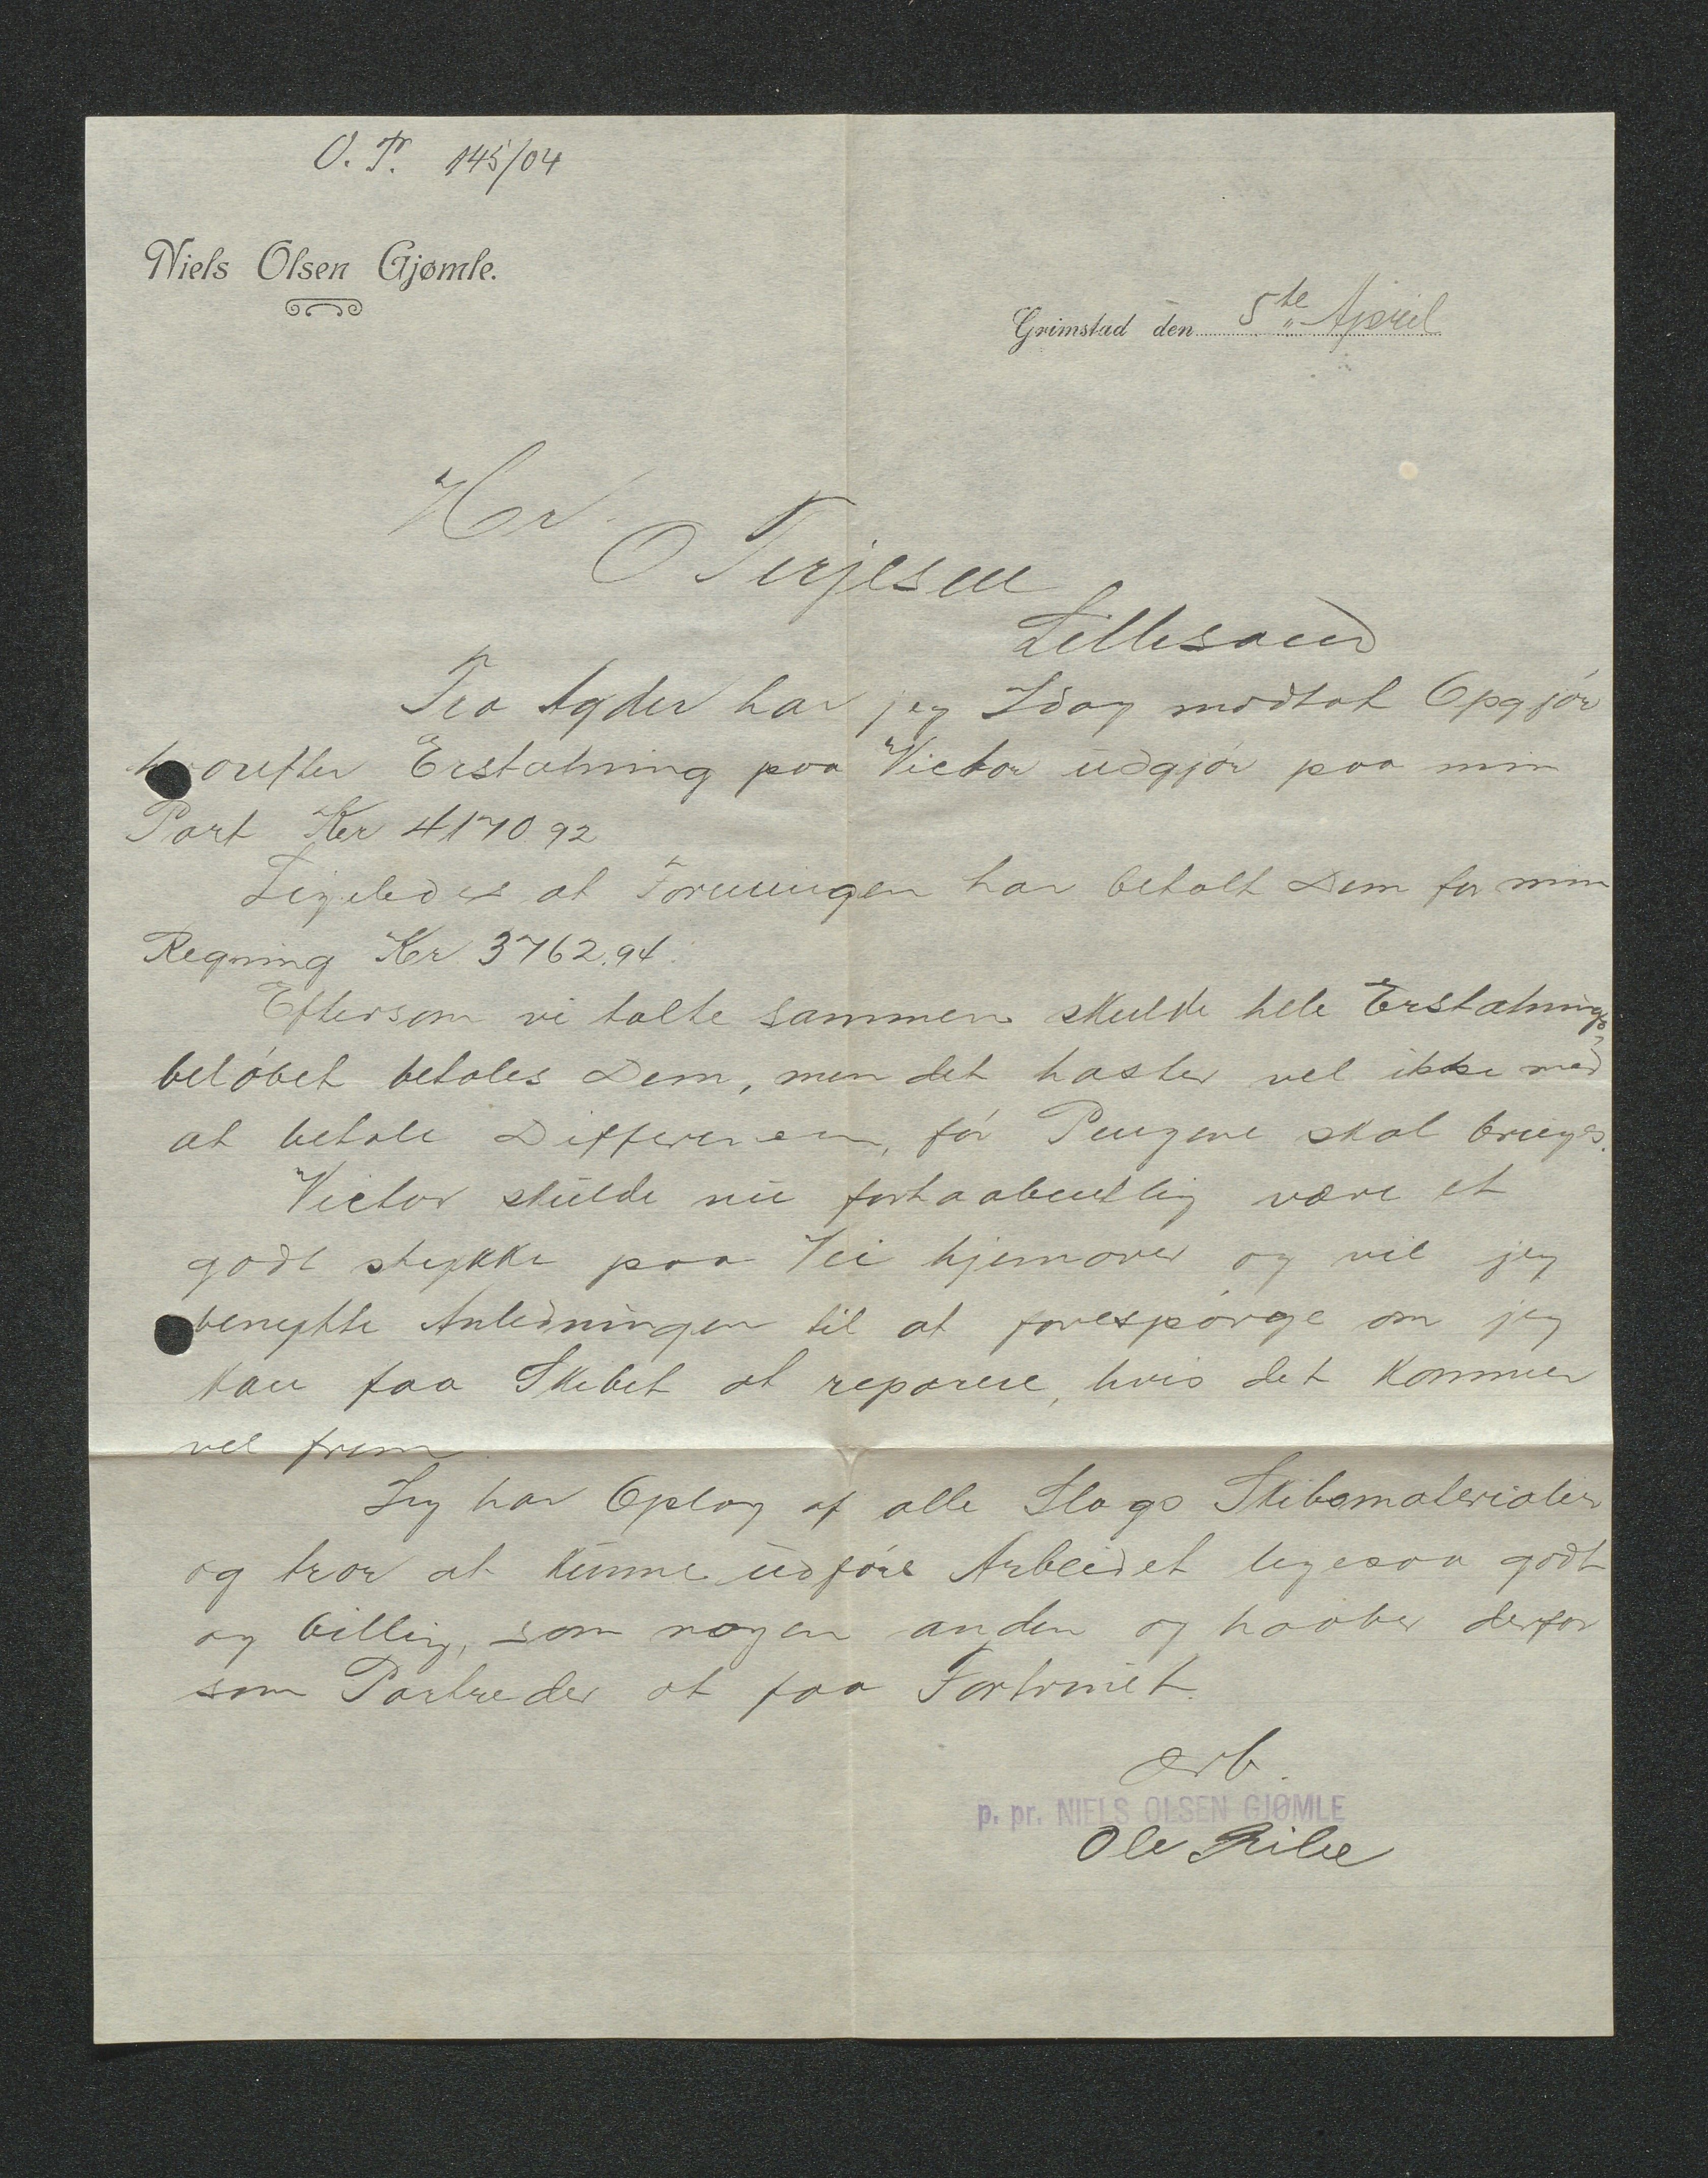 O. T. 145/04
Niels Olsen Gjømle.
Grimstad den 5te April
Hr.
O Terjesen
Lillesand
Fra Agder har jeg Idag modtat Opgjör
hvorefter Erstatning paa Victor udgjör paa min
Part Kr 4170.92
Ligeledes at Foreningen har betalt Dem for min
Regning Kr 3762.94.
Eftersom vi talte sammen skulde hele Erstatnings
belöbet betales Dem, men det haster vel ikke med
at betale Differencen, för Pengene skal bruges.
Victor skulde nu forhaabentlig være et
godt stykke paa Vei hjemover og vil jeg
benytte Anledningen til at forespörge om jeg
kan faa Skibet at reparere, hvis det kommer
vel frem.
Jeg har Oplag af alle Slags Skibsmaterialer
og tror at kunne udföre Arbeidet ligesaa godt
og billig, som nogen anden og haaber derfor
som Partreder at faa Fortrinet.
Ærb.
p. pr. NIELS OLSEN GJØMLE
Ole